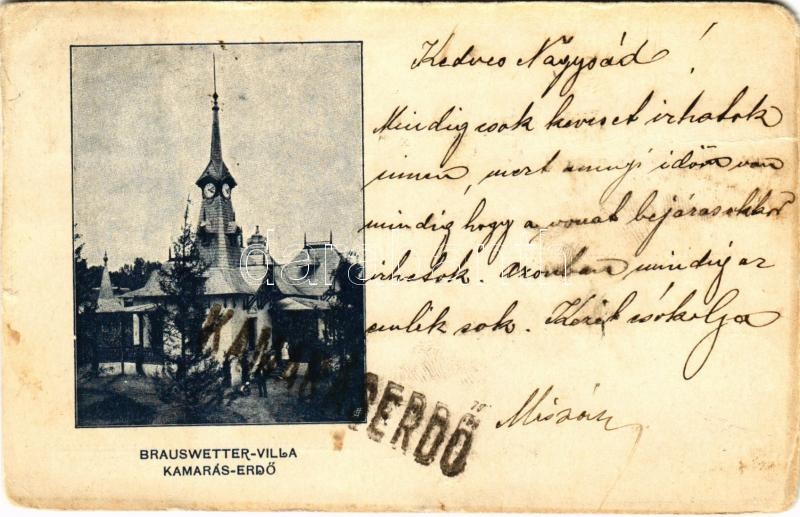 Kedves Nagysád!
Mindig csak keveset irhatok
innen, mert annyi időm van
mindig hogy a vonat bejárásakkor
irhatok. Azonban mindig az
emlék sok. Kezeit csókolja
BRAUSWETTER-VILLA
KAMARÁS-ERDŐ
KAMARÁSERDŐ
darabanth.com